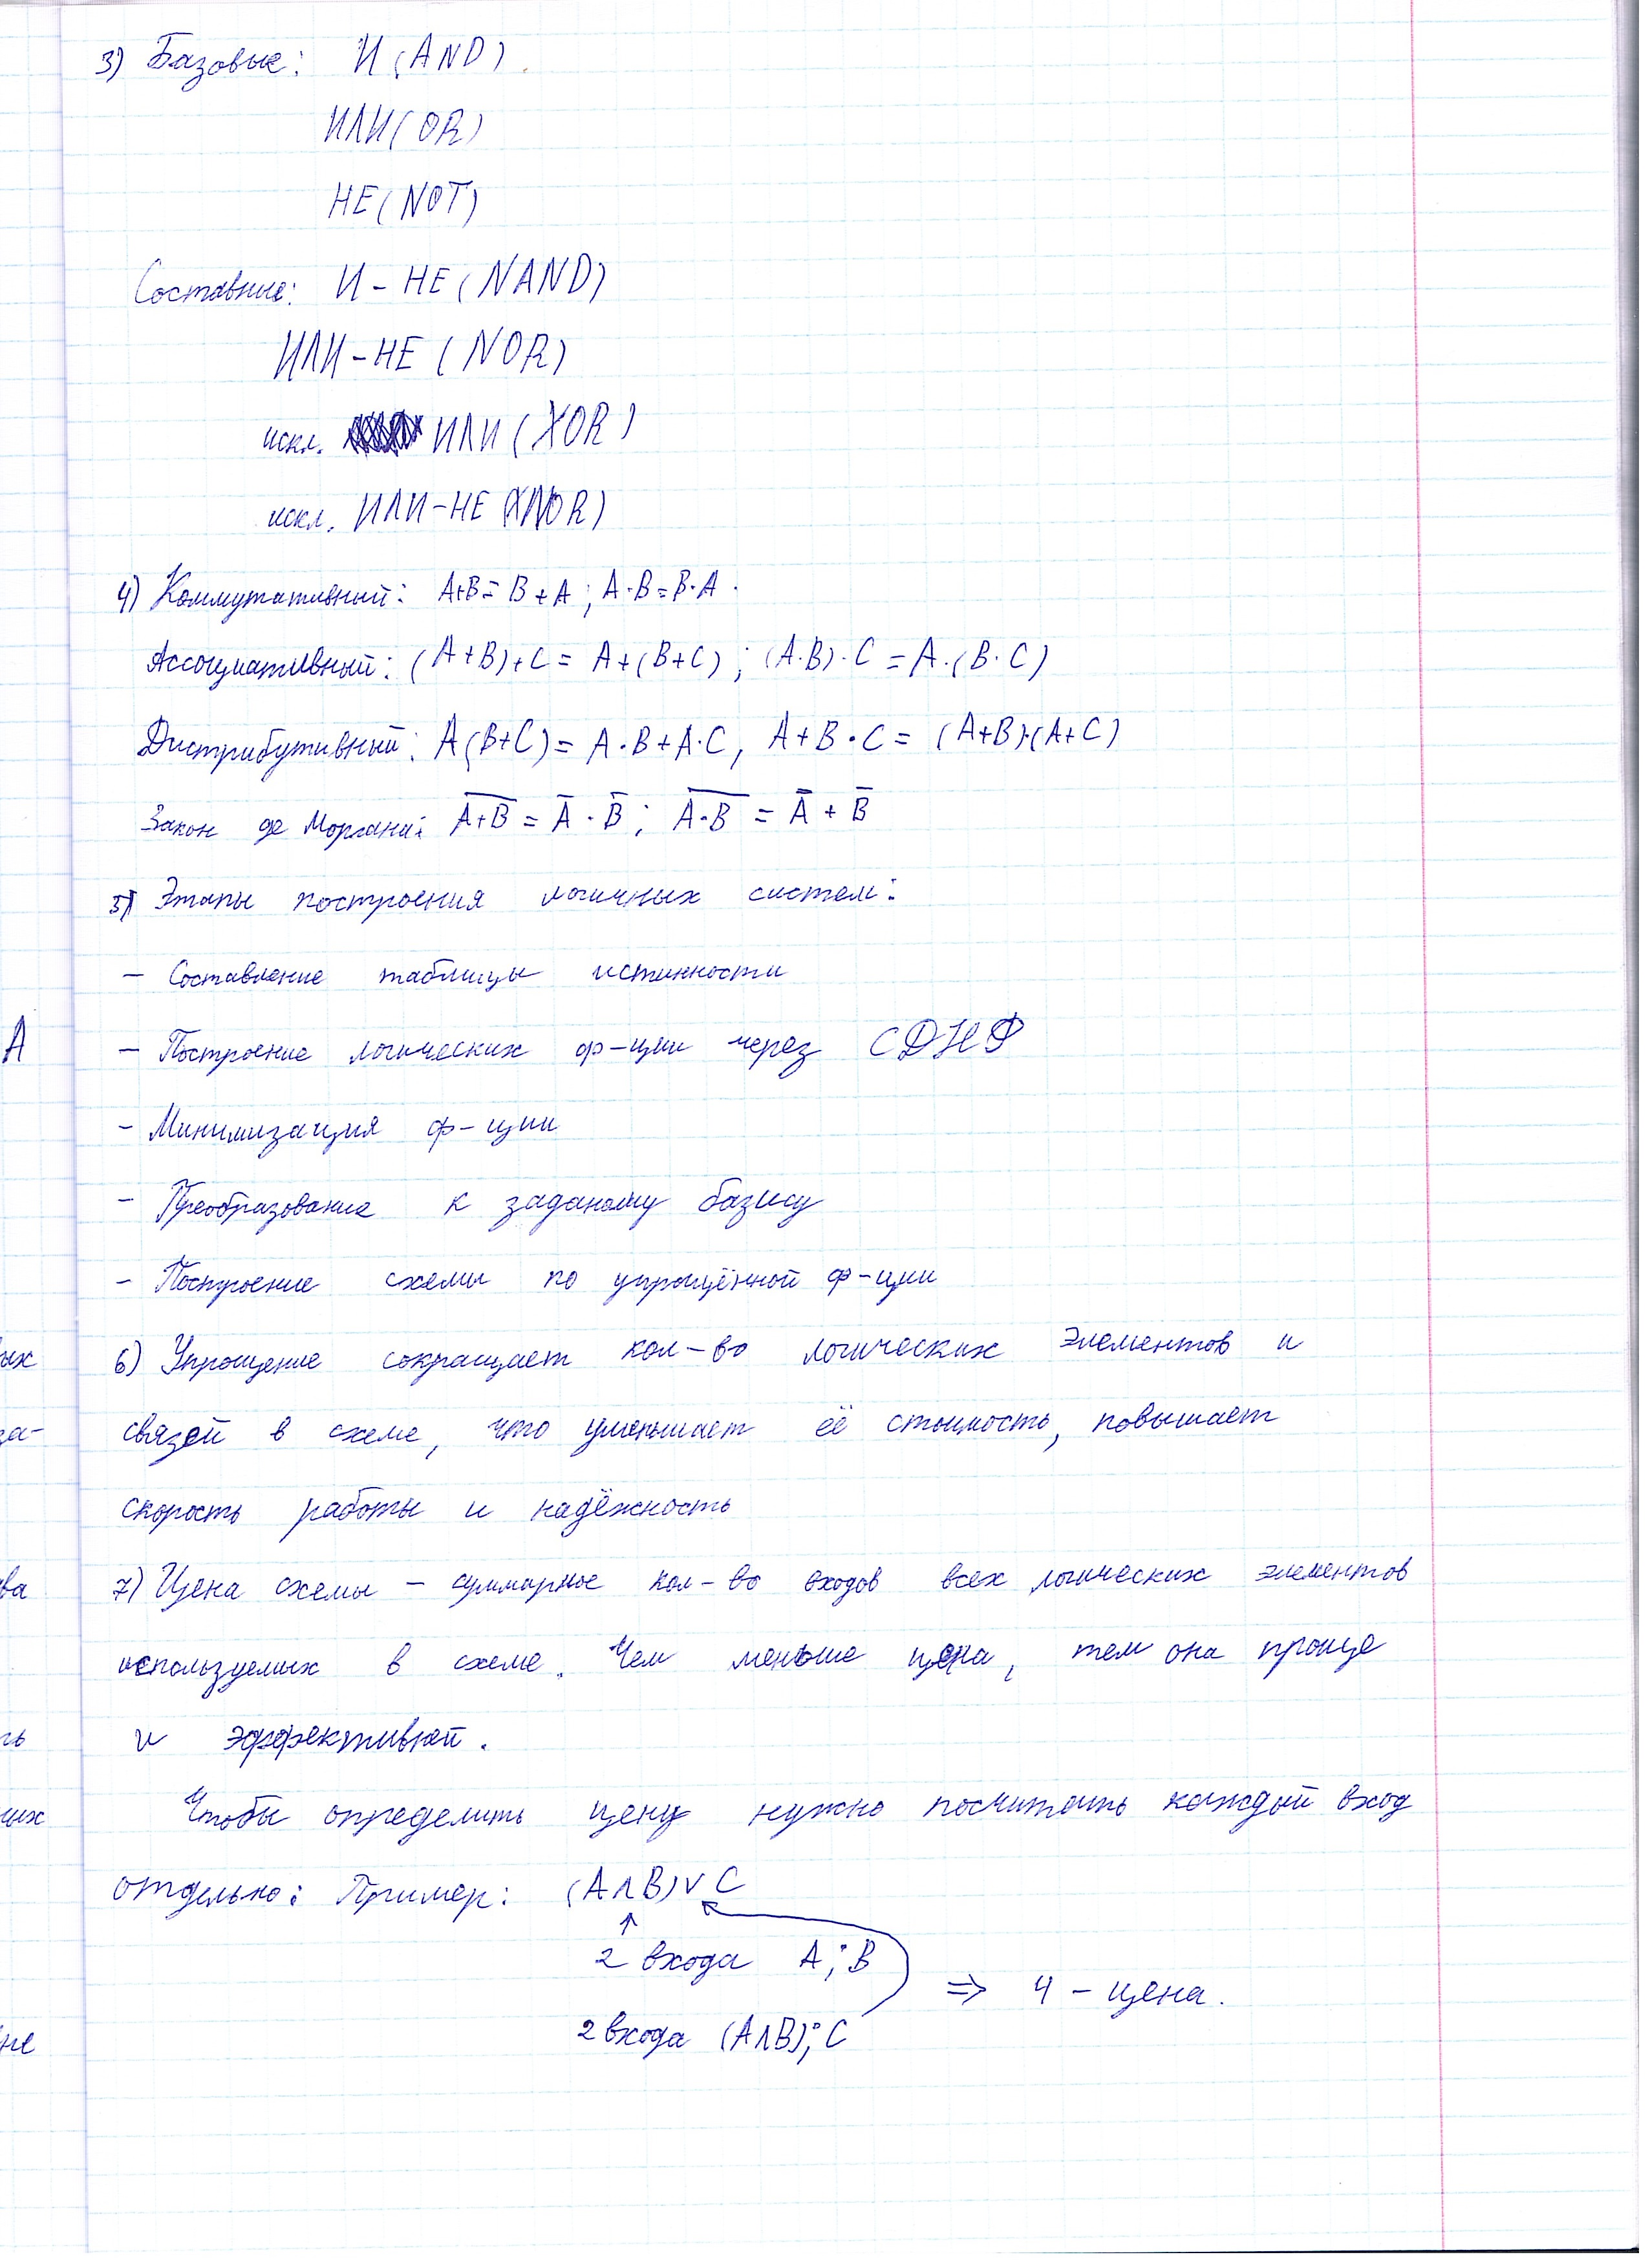 3) Базовые: И (AND)
ИЛИ (OR)
НЕ (NOT)
Составные: И - НЕ (NAND)
ИЛИ - НЕ (NOR)
искл. ИЛИ (XOR)
искл. ИЛИ - НЕ (XNOR)
4) Коммутативный: A+B = B+A ; A·B = B·A.
Ассоциативный: (A+B)+C = A+(B+C) ; (A·B)·C = A·(B·C)
Дистрибутивный: A(B+C) = A·B+A·C, A+B·C = (A+B)·(A+C)
Закон де Моргана: A̅+̅B̅ = A̅ · B̅ ; A̅·̅B̅ = A̅ + B̅
5) Этапы построения логичных систем:
- Составление таблицы истинности
- Построение логических ф-ции через СДНФ
- Минимизация ф-ции
- Преобразование к заданому базису
- Построение схемы по упрощённой ф-ции
6) Упрощение сокращает кол-во логических элементов и
связей в схеме, что уменьшает её стоимость, повышает
скорость работы и надёжность
7) Цена схемы - суммарное кол-во входов всех логических элементов
используемых в схеме. Чем меньше цена, тем она проще
и эффективней.
Чтобы определить цену нужно посчитать каждый вход
отдельно: Пример: (A∧B)∨C
↑
2 входа A ; B
⇒ 4 - цена.
2 входа (A∧B) ; C
А